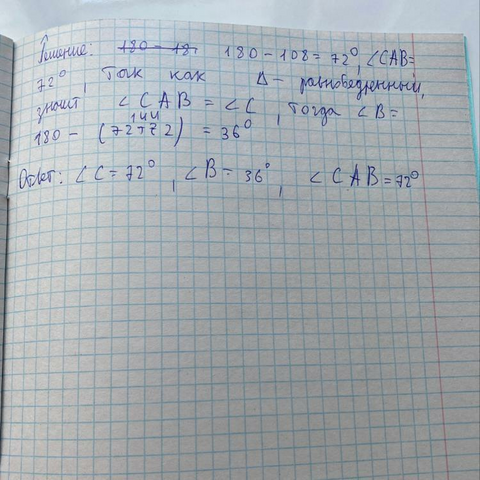 Решение: 180 - 18. 180 - 108 = 72°, ∠CAB =
72°, так как Δ - равнобедренный,
значит ∠CAB = ∠C, тогда ∠B =
144
180 - (72+72) = 36°
Ответ: ∠C = 72°, ∠B = 36°, ∠CAB = 72°